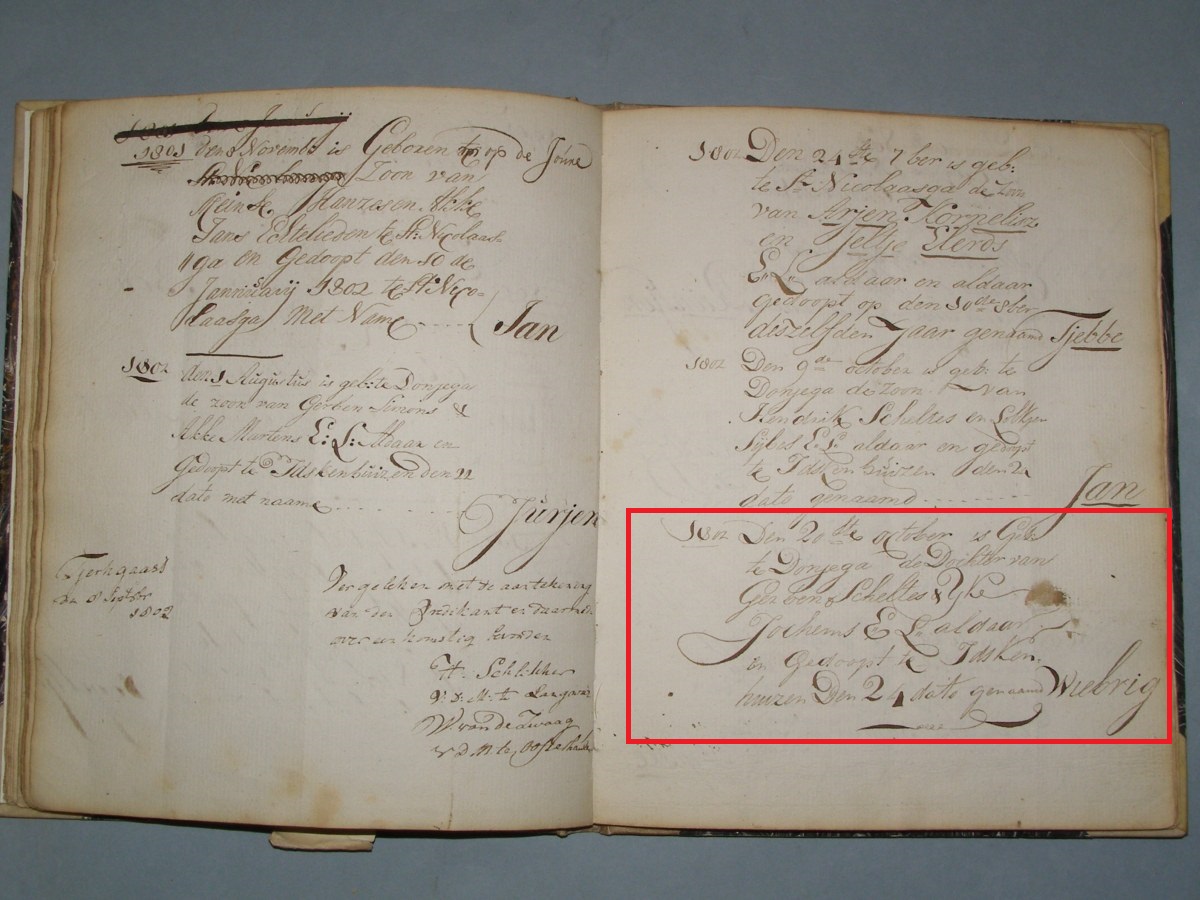 1801 den 8 Novembr is Geboren op de Joure
Zoon van
Meinte Hanzes en Akke
Jans Echtelieden te St: Nicolaas
ga en Gedoopt den 10 de
Januuarij 1802 te St Nico-
laasga Met Name ..... Jan
1802 den 1 Augustus is geb: te Donjega
de zoon van Gerben Simons &
Akke Martens E: L: Aldaar en
Gedoopt te Idskenhuizen den 22
dato met naame ..... Jurjen
Tjerkgaast
den 8 Septbr
1802
Vergeleken met de aantekening
van den Predikant en daarmede
over een komstig bevonden
H. Schlikker
V. D. M. te Langweer
W. van der Zwaag
V. D. M te Oosterhaule
1802 Den 24ste 7ber is geb:
te St Nicolaasga de zoon
van Arjen Kornelisz
en Jeltje Eleerds
E: L: aldaar en aldaar
gedoopt op den 10de 8ber
deszelfden Jaar genaamd Tjebbe
1802 Den 9de october is geb: te
Donjega de zoon van
Hendrik Scheltes en
Sijbes E: L: aldaar en gedoopt
te Idskenhuizen den 24
dato genaamd ......... Jan
1802 Den 20ste october is Geb:
te Donjega de Dochter van
Gerben Scheltes & Yke
Jochems E L: aldaar
en Gedoopt te Idsken
huizen Den 24 dato genaamd Wiebrig